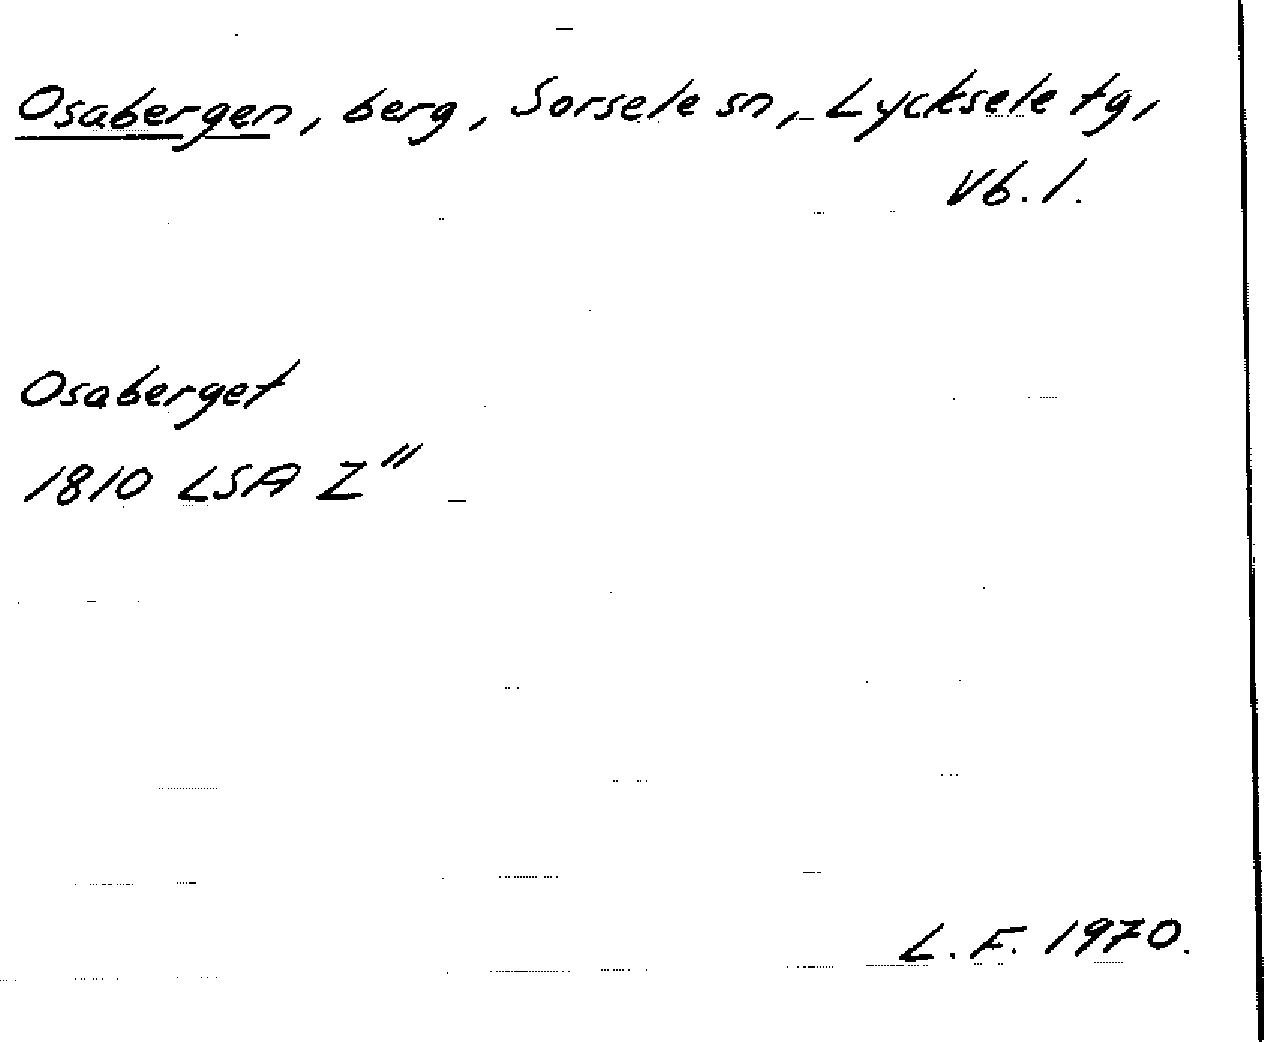 Osabergen, berg, Sorsele sn, Lycksele tg,
Vb. l.
Osaberget
1810 LSA Z"
L. F. 1970.